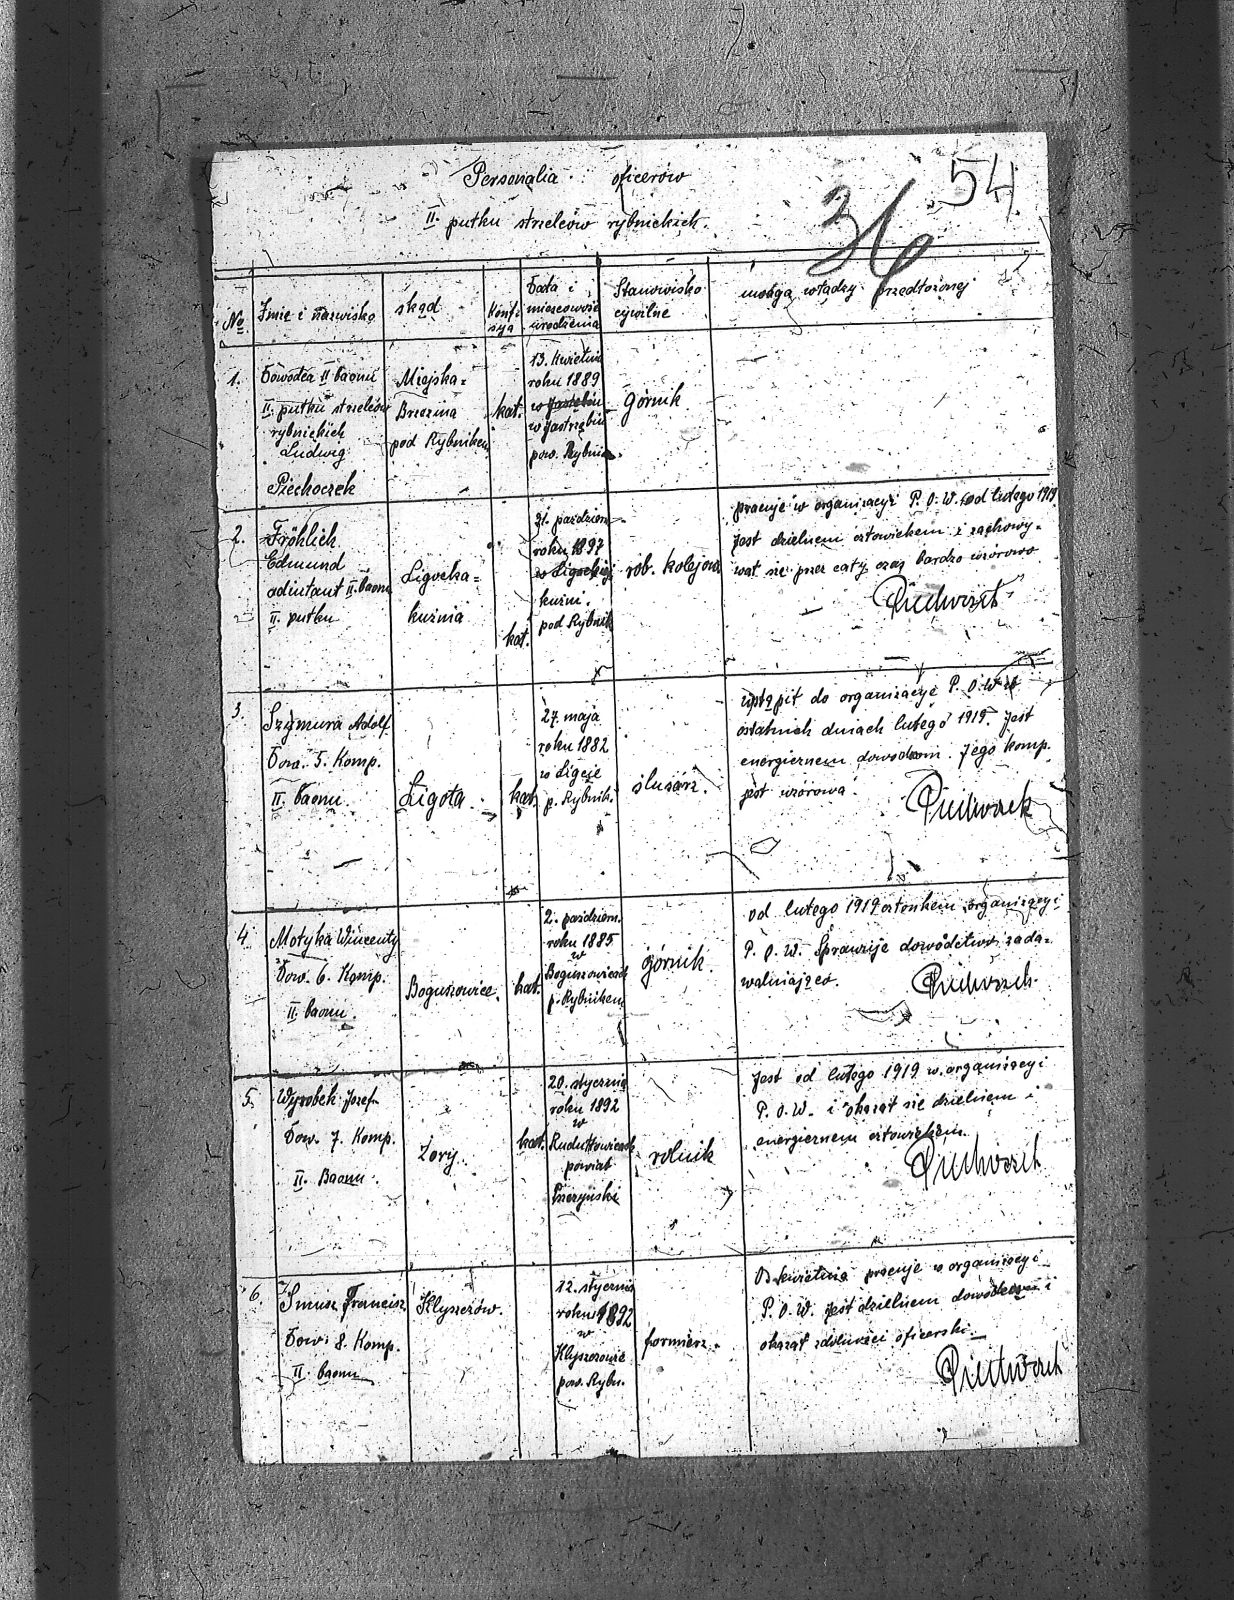 54
36
Personalia oficerów
II. pułku strzelców rybnickich.
No
Imię i nazwisko
skąd
Konfe
sya
Data i
miescowość
urodzenia
Stanowisko
cywilne
uwaga władzy przedłożonej
1.
Dowódca II baonu
II. pułku strzelców
rybnickich
Ludwig
Piechoczek
Miejska-
Brzezina
pod Rybnikem
kat.
13. kwietnia
roku 1889
w Jastrzębiu
pow. Rybnic.
górnik
2.
Fröhlich
Edmund
adiutant II. baonu
II. pułku
Ligocka-
kuźnia
kat.
31. październ
roku 1897
w Ligockiej
kuźni.
pod Rybnik
rob. kolejowy
pracuje w organizacyi P. O. W. od lutego 1919
Jest dzielnem człowiekem i zachowy-
wał się przez cały czas bardzo wzorowo
Piechoczek
3.
Szymura Adolf
Dow. 5. Komp.
II. baonu.
Ligota.
kat.
27. maja
roku 1882
w Ligocie
p. Rybnik.
ślusarz.
wstąpił do organizacye P. O. W. w
ostatnich dniach lutego 1919. Jest
energicznem dowodcom. Jego komp.
jest wzorowa.
Piechoczek
4.
Motyka Wincenty
Dow. 6. Komp.
II. baonu.
Boguszowice.
kat.
2. październ.
roku 1885
w
Boguszowicach
p. Rybnikem
górnik.
od lutego 1919 członkem organizacyi
P. O. W. Sprawuje dowództwo zada-
walniająco.
Piechoczek
5.
Wyrobek Jozef
Dow. 7. Komp.
II. Baonu.
Żory.
kat.
20. stycznia
roku 1892
w
Rudułtowicach
powiat
Pszczyński
rolnik
Jest od lutego 1919 w organizacyi
P. O. W. i okazał się dzielnem i
energicznem człowiekem.
Piechoczek
6.
Smusz Francisz
Dow. 8. Komp.
II. baonu
Klyszczów.
12. stycznia
roku 1892
w
Klyszczowie
pow. Rybn.
formierz.
Od kwietnia pracuje w organizacyi
P. O. W. jest dzielnem dowódcem i
okazał zdolności oficerski.
Piechoczek